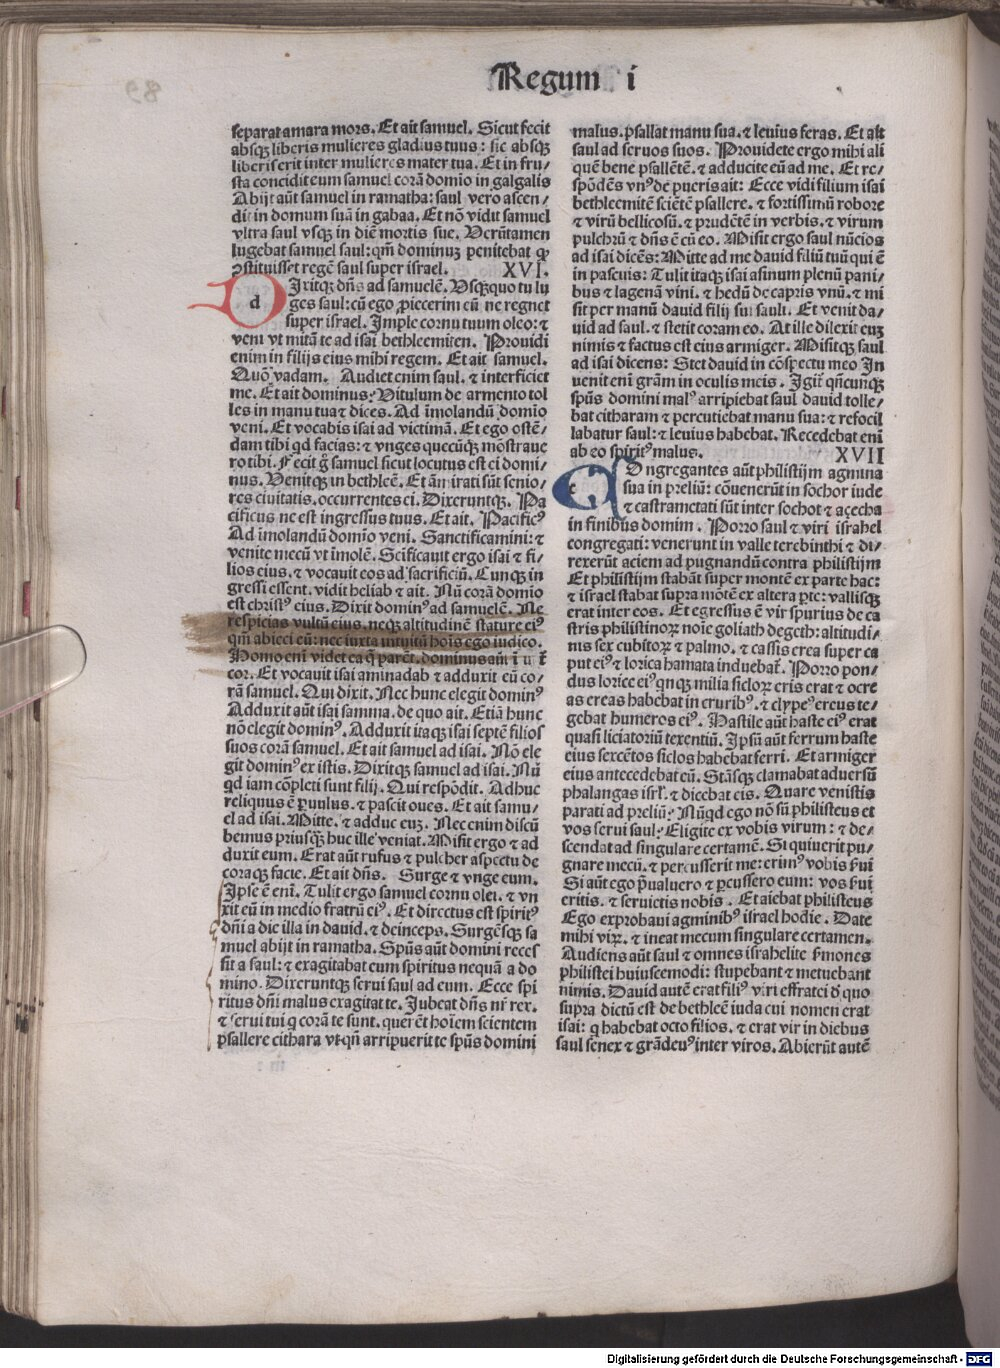 Regum i
separat amara mors. Et ait samuel. Sicut fecit
absqꝫ liberis mulieres gladius tuus: sic absqꝫ
liberis erit inter mulieres mater tua. Et in fru/
sta concidit eum samuel corā domīo in galgalis
Abijt aūt samuel in ramatha: saul vero ascen/
dit in domum suā in gabaa. Et nō vidit samuel
vltra saul vsqꝫ in diē mortis sue. Verūtamen
lugebat samuel saul: qm̄ dominuꝫ penitebat ꝙ
ꝯstituisset regē saul super israel. XVI.
d Ixitqꝫ dn̄s ad samuelē. Vsqꝫquo tu lu
ges saul: cū ego ꝓiecerim eū ne regnet
super israel. Imple cornu tuum oleo: ⁊
veni vt mitā te ad isai bethleemiten. Prouidi
enim in filijs eius mihi regem. Et ait samuel.
Quō vadam. Audiet enim saul. ⁊ interficiet
me. Et ait dominus: Vitulum de armento tol
les in manu tua ⁊ dices. Ad īmolandū domīo
veni. Et vocabis isai ad victimā. Et ego ostē/
dam tibi qd facias: ⁊ vnges quecūqꝫ mōstraue
ro tibi. Fecit g̊ samuel sicut locutus est ei domi/
nus. Venitqꝫ in bethleē. Et āmirati sūt senio/
res ciuitatis. occurrentes ei. Dixeruntqꝫ. Pa
cificus ne est ingressus tuus. Et ait. Pacificꝰ
Ad īmolandū domīo veni. Sanctificamini: ⁊
venite mecū vt īmolē. Scificauit ergo isai ⁊ fi/
lios eius. ⁊ vocauit eos ad sacrificiū. Cunqꝫ in
gressi essent. vidit heliab ⁊ ait. Nū corā domīo
est christꝰ eius. Dixit dominꝰ ad samuelē. Ne
respicias vultū eius. neqꝫ altitudinē stature eiꝰ
qm̄ abieci eū: nec iuxta intuitū hoīs ego iudico.
Homo eni videt ea q̄ parēt. dominus
cor. Et vocauit isai aminadab ⁊ adduxit eū co/
rā samuel. Qui dixit. Nec hunc elegit dominꝰ
Adduxit aūt isai samma. de quo ait. Etiā hunc
nō elegit dominꝰ. Adduxit itaqꝫ isai septē filios
suos corā samuel. Et ait samuel ad isai. Nō ele
git dominꝰ ex istis. Dixitqꝫ samuel ad isai. Nū
qd iam cōpleti sunt filij. Qui respōdit. Adhuc
reliquus ē ꝑuulus. ⁊ pascit oues. Et ait samu/
el ad isai. Mitte. ⁊ adduc euꝫ. Nec enim discū
bemus priusqꝫ huc ille veniat. Misit ergo ⁊ ad
duxit eum. Erat aūt rufus ⁊ pulcher aspectu de
coraqꝫ facie. Et ait dn̄s. Surge ⁊ vnge eum.
Ipse ē eni. Tulit ergo samuel cornu olei. ⁊ vn
xit eū in medio fratrū eiꝰ. Et directus est spiritꝰ
dn̄i a die illa in dauid. ⁊ deinceps. Surgēsqꝫ sa
muel abijt in ramatha. Spūs aūt domini reces
sit a saul: ⁊ exagitabat eum spiritus nequā a do
mino. Dixeruntqꝫ serui saul ad eum. Ecce spi
ritus dn̄i malus exagitat te. Iubeat dn̄s nr̄ rex.
⁊ serui tui q corā te sunt. querēt hoīem scientem
psallere cithara vt qn̄ arripuerit te spūs domini
malus. psallat manu sua. ⁊ leuius feras. Et ait
saul ad seruos suos. Prouidete ergo mihi ali
quē bene psallētē. ⁊ adducite eū ad me. Et re/
spōdēs vnꝰ de pueris ait: Ecce vidi filium isai
bethleemitē sciētē psallere. ⁊ fortissimū robore
⁊ virū bellicosū. ⁊ prudētē in verbis. ⁊ virum
pulchrū ⁊ dn̄s ē cū eo. Misit ergo saul nūcios
ad isai dicēs: Mitte ad me dauid filiū tuū qui ē
in pascuis: Tulit itaqꝫ isai asinum plenū pani/
bus ⁊ lagenā vini. ⁊ hedū de capris vnū. ⁊ mi
sit per manū dauid filij sui saul. Et venit da/
uid ad saul. ⁊ stetit coram eo. At ille dilexit euꝫ
nimis ⁊ factus est eius armiger. Misitqꝫ saul
ad isai dicens: Stet dauid in cōspectu meo In
venit eni grām in oculis meis. Igit̄ qn̄cunqꝫ
spūs domini malꝰ arripiebat saul dauid tolle/
bat citharam ⁊ percutiebat manu sua: ⁊ refocil
labatur saul: ⁊ leuius habebat. Recedebat eni
ab eo spiritꝰ malus. XVII
c Ongregantes aūt philistijm agmina
sua in p̄eliū: cōuenerūt in sochor iude
⁊ castrametati sūt inter sochot ⁊ açecha
in finibus domim. Porro saul ⁊ viri israhel
congregati: venerunt in valle terebinthi ⁊ di/
rexerūt aciem ad pugnandū contra philistijm
Et philistijm stabāt super montē ex parte hac:
⁊ israel stabat supra mōtē ex altera ꝑte: vallisqꝫ
erat inter eos. Et egressus ē vir spurius de ca
stris philistinoꝝ noīe goliath de geth: altitudi/
nis sex cubitoꝝ ⁊ palmo. ⁊ cassis erea super ca
put eiꝰ ⁊ lorica hamata induebat̄. Porro pon/
dus lorice eiꝰ qnqꝫ milia sicloꝝ eris erat ⁊ ocre
as ereas habebat in cruribꝰ. ⁊ clypeꝰ ereus te/
gebat humeros eiꝰ. Hastile aūt haste eiꝰ erat
quasi liciatoriū texentiū. Ipsū aūt ferrum haste
eius sexcētos siclos habebat ferri. Et armiger
eius antecedebat eū. Stāsqꝫ clamabat aduersū
phalangas isrl̄. ⁊ dicebat eis. Quare venistis
parati ad preliū: Nūqd ego nō sū philisteus et
vos serui saul: Eligite ex vobis virum: ⁊ de/
scendat ad singulare certamē. Si quiuerit pu/
gnare mecū. ⁊ percusserit me: erimꝰ vobis s̄ui
Si aūt ego p̄ualuero ⁊ ꝑcussero eum: vos s̄ui
eritis. ⁊ seruietis nobis. Et aiebat philisteus
Ego exprobaui agminibꝰ israel hodie. Date
mihi viꝝ. ⁊ ineat mecum singulare certamen.
Audiens aūt saul ⁊ omnes israhelite s̄mones
philistei huiuscemodi: stupebant ⁊ metuebant
nimis. Dauid autē erat filiꝰ viri effratei d̄ quo
supra dictū est de bethleē iuda cui nomen erat
isai: q habebat octo filios. ⁊ erat vir in diebus
saul senex ⁊ grādeuꝰ inter viros. Abierūt autē
Digitalisierung gefördert durch die Deutsche Forschungsgemeinschaft - DFG